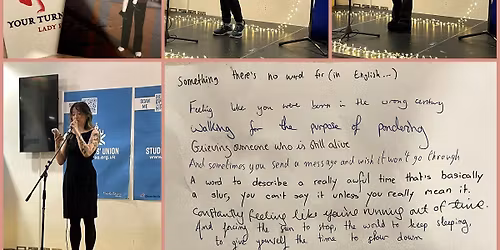 YOUR TURN
LADY
Something there's no word for (in English...)
Feeling like you were born in the wrong century
walking for the purpose of pondering
Grieving someone who is still alive
And sometimes you send a message and wish it won't go through
A word to describe a really awful time that's basically
a slur, you can't say it unless you really mean it.
Constantly feeling like you're running out of time.
And facing the sun to stop, the world to keep sleeping.
to give yourself the time to slow down
UNION
STUD